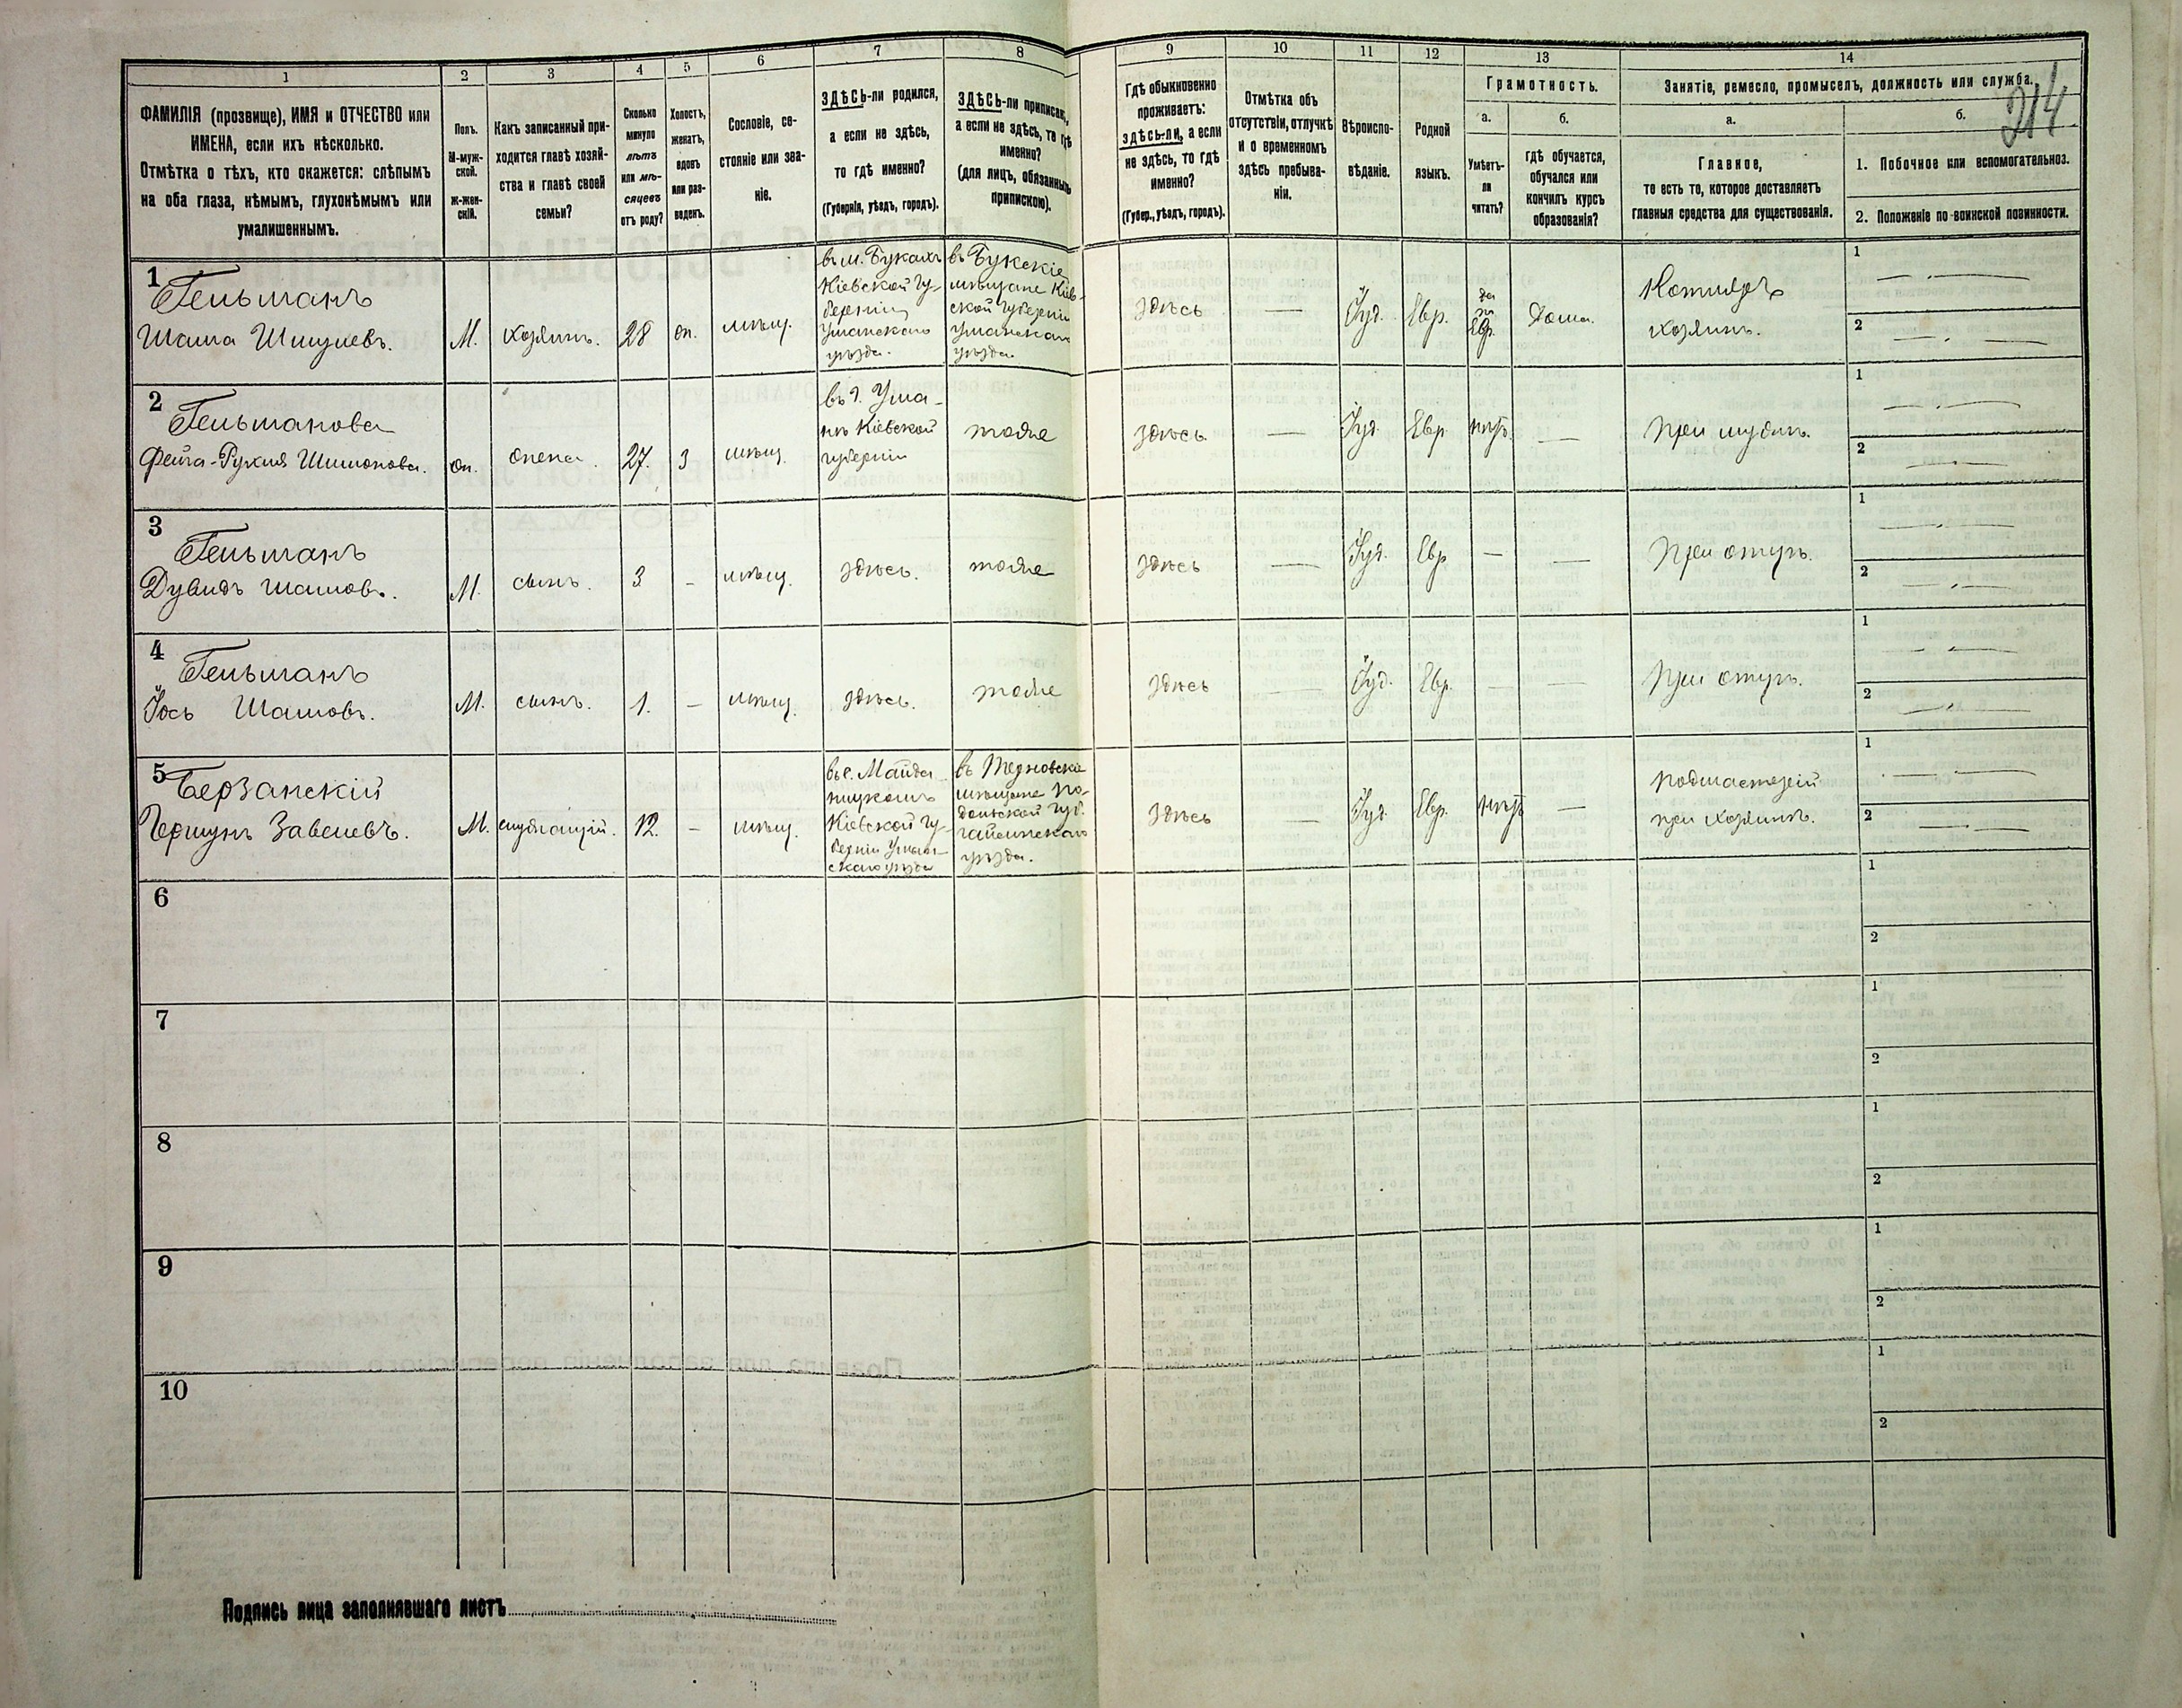 1 2 3 4 5 6 7 8 9 10 11 12 13 14
ФАМИЛІЯ (прозвище), ИМЯ и ОТЧЕСТВО или
ИМЕНА, если ихъ нѣсколько.
Отмѣтка о тѣхъ, кто окажется: слѣпымъ
на оба глаза, нѣмымъ, глухонѣмымъ или
умалишеннымъ.
Полъ.
М-муж-
ской.
Ж-жен-
скій.
Какъ записанный при-
ходится главѣ хозяй-
ства и главѣ своей
семьи?
Сколько
минуло
лѣтъ
или мѣ-
сяцевъ
отъ роду?
Холостъ,
женатъ,
вдовъ
или раз-
веденъ.
Сословіе, со-
стояніе или зва-
ніе.
ЗДѢСЬ-ли родился,
а если не здѣсь,
то гдѣ именно?
(Губернія, уѣздъ, городъ).
ЗДѢСЬ-ли приписанъ,
а если не здѣсь, то гдѣ
именно?
(для лицъ, обязанныхъ
припискою).
Гдѣ обыкновенно
проживаетъ:
ЗДѢСЬ-ли, а если
не здѣсь, то гдѣ
именно?
(Губер., уѣздъ, городъ).
Отмѣтка объ
отсутствіи, отлучкѣ
и о временномъ
здѣсь пребыва-
ніи.
Вѣроиспо-
вѣданіе.
Родной
языкъ.
Грамотность.
а.
Умѣетъ-
ли
читать?
б.
гдѣ обучается,
обучался или
кончилъ курсъ
образованія?
Занятіе, ремесло, промыселъ, должность или служба.
214
а.
Главное,
то есть то, которое доставляетъ
главныя средства для существованія.
б.
1. Побочное или вспомогательноэ.
2. Положеніе по воинской повинности.
1
Гельманъ
Шама Шмулевъ.
М.
хозяинъ.
28
жн.
мѣщ.
въ м. Букахъ
Кіевской гу-
берніи
Уманскаго
уѣзда.
въ Букскіе
мѣщане Кіев-
ской губерніи
Уманскаго
уѣзда.
здѣсь
—
Іуд.
Евр.
да
по
Евр.
Дома.
хозяинъ.
1 —
2 —
2
Гельманова
Фейга-Рухля Шимонова.
жн.
жена.
27.
з
мѣщ.
въ г. Ума-
нѣ Кіевской
губерніи
тоже
здѣсь.
—
Іуд.
Евр
нѣтъ.
—
при мужѣ.
1 —
2 —
3
Гельманъ
Дувидъ Шамовъ.
М.
сынъ.
3
-
мѣщ.
здѣсь.
тоже
здѣсь
—
Іуд.
Евр
—
—
при отцѣ.
1 —
2 —
4
Гельманъ
Іось Шамовъ.
М.
сынъ.
1.
—
мѣщ.
здѣсь.
тоже
здѣсь
—
Іуд.
Евр.
—
—
при отцѣ.
1 —
2 —
5
Берзанскій
Гершунъ Завелевъ.
М.
служащій.
12.
-
мѣщ.
въ с. Майда-
нецкомъ
Кіевской гу-
берніи Уман-
скаго уѣзда
въ Терновскіе
мѣщане По-
дольской губ.
Гайсинскаго
уѣзда.
здѣсь
—
Іуд.
Евр.
нѣтъ
—
подмастерій
при хозяинѣ.
1 —
2 —
6
1
2
7
1
2
8
1
2
9
1
2
10
1
2
Подпись лица заполнявшаго листъ